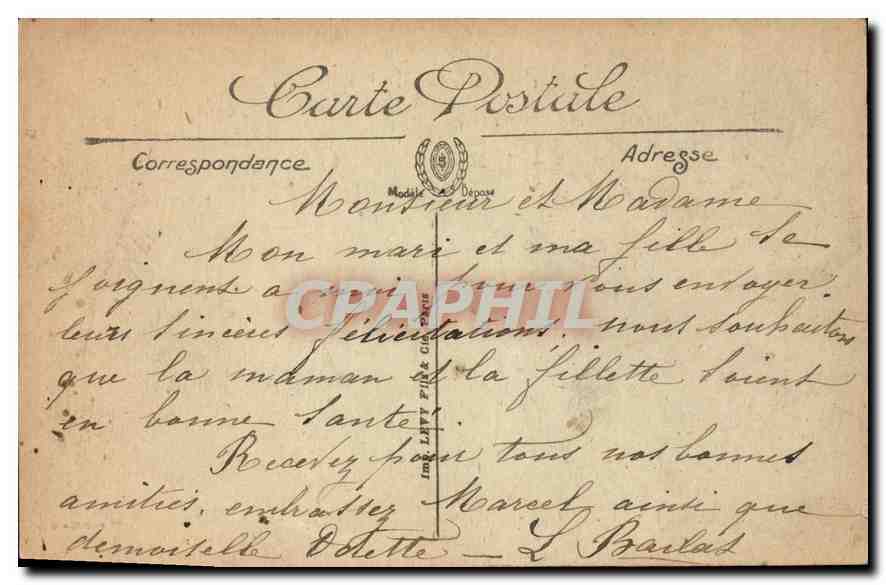 Carte Postale
Correspondance
Adresse
Modèle Déposé
Monsieur et Madame
Mon mari et ma fille se
joignent a moi pour vous envoyer
leurs sincères félicitations. nous souhaitons
que la maman et la fillette soient
en bonne santé.
Recevez pour tous nos bonnes
amitiés. embrassez Marcel ainsi que
demoiselle Odette — L
Imp. LEVY Fils & Cie Paris
CPAPHIL